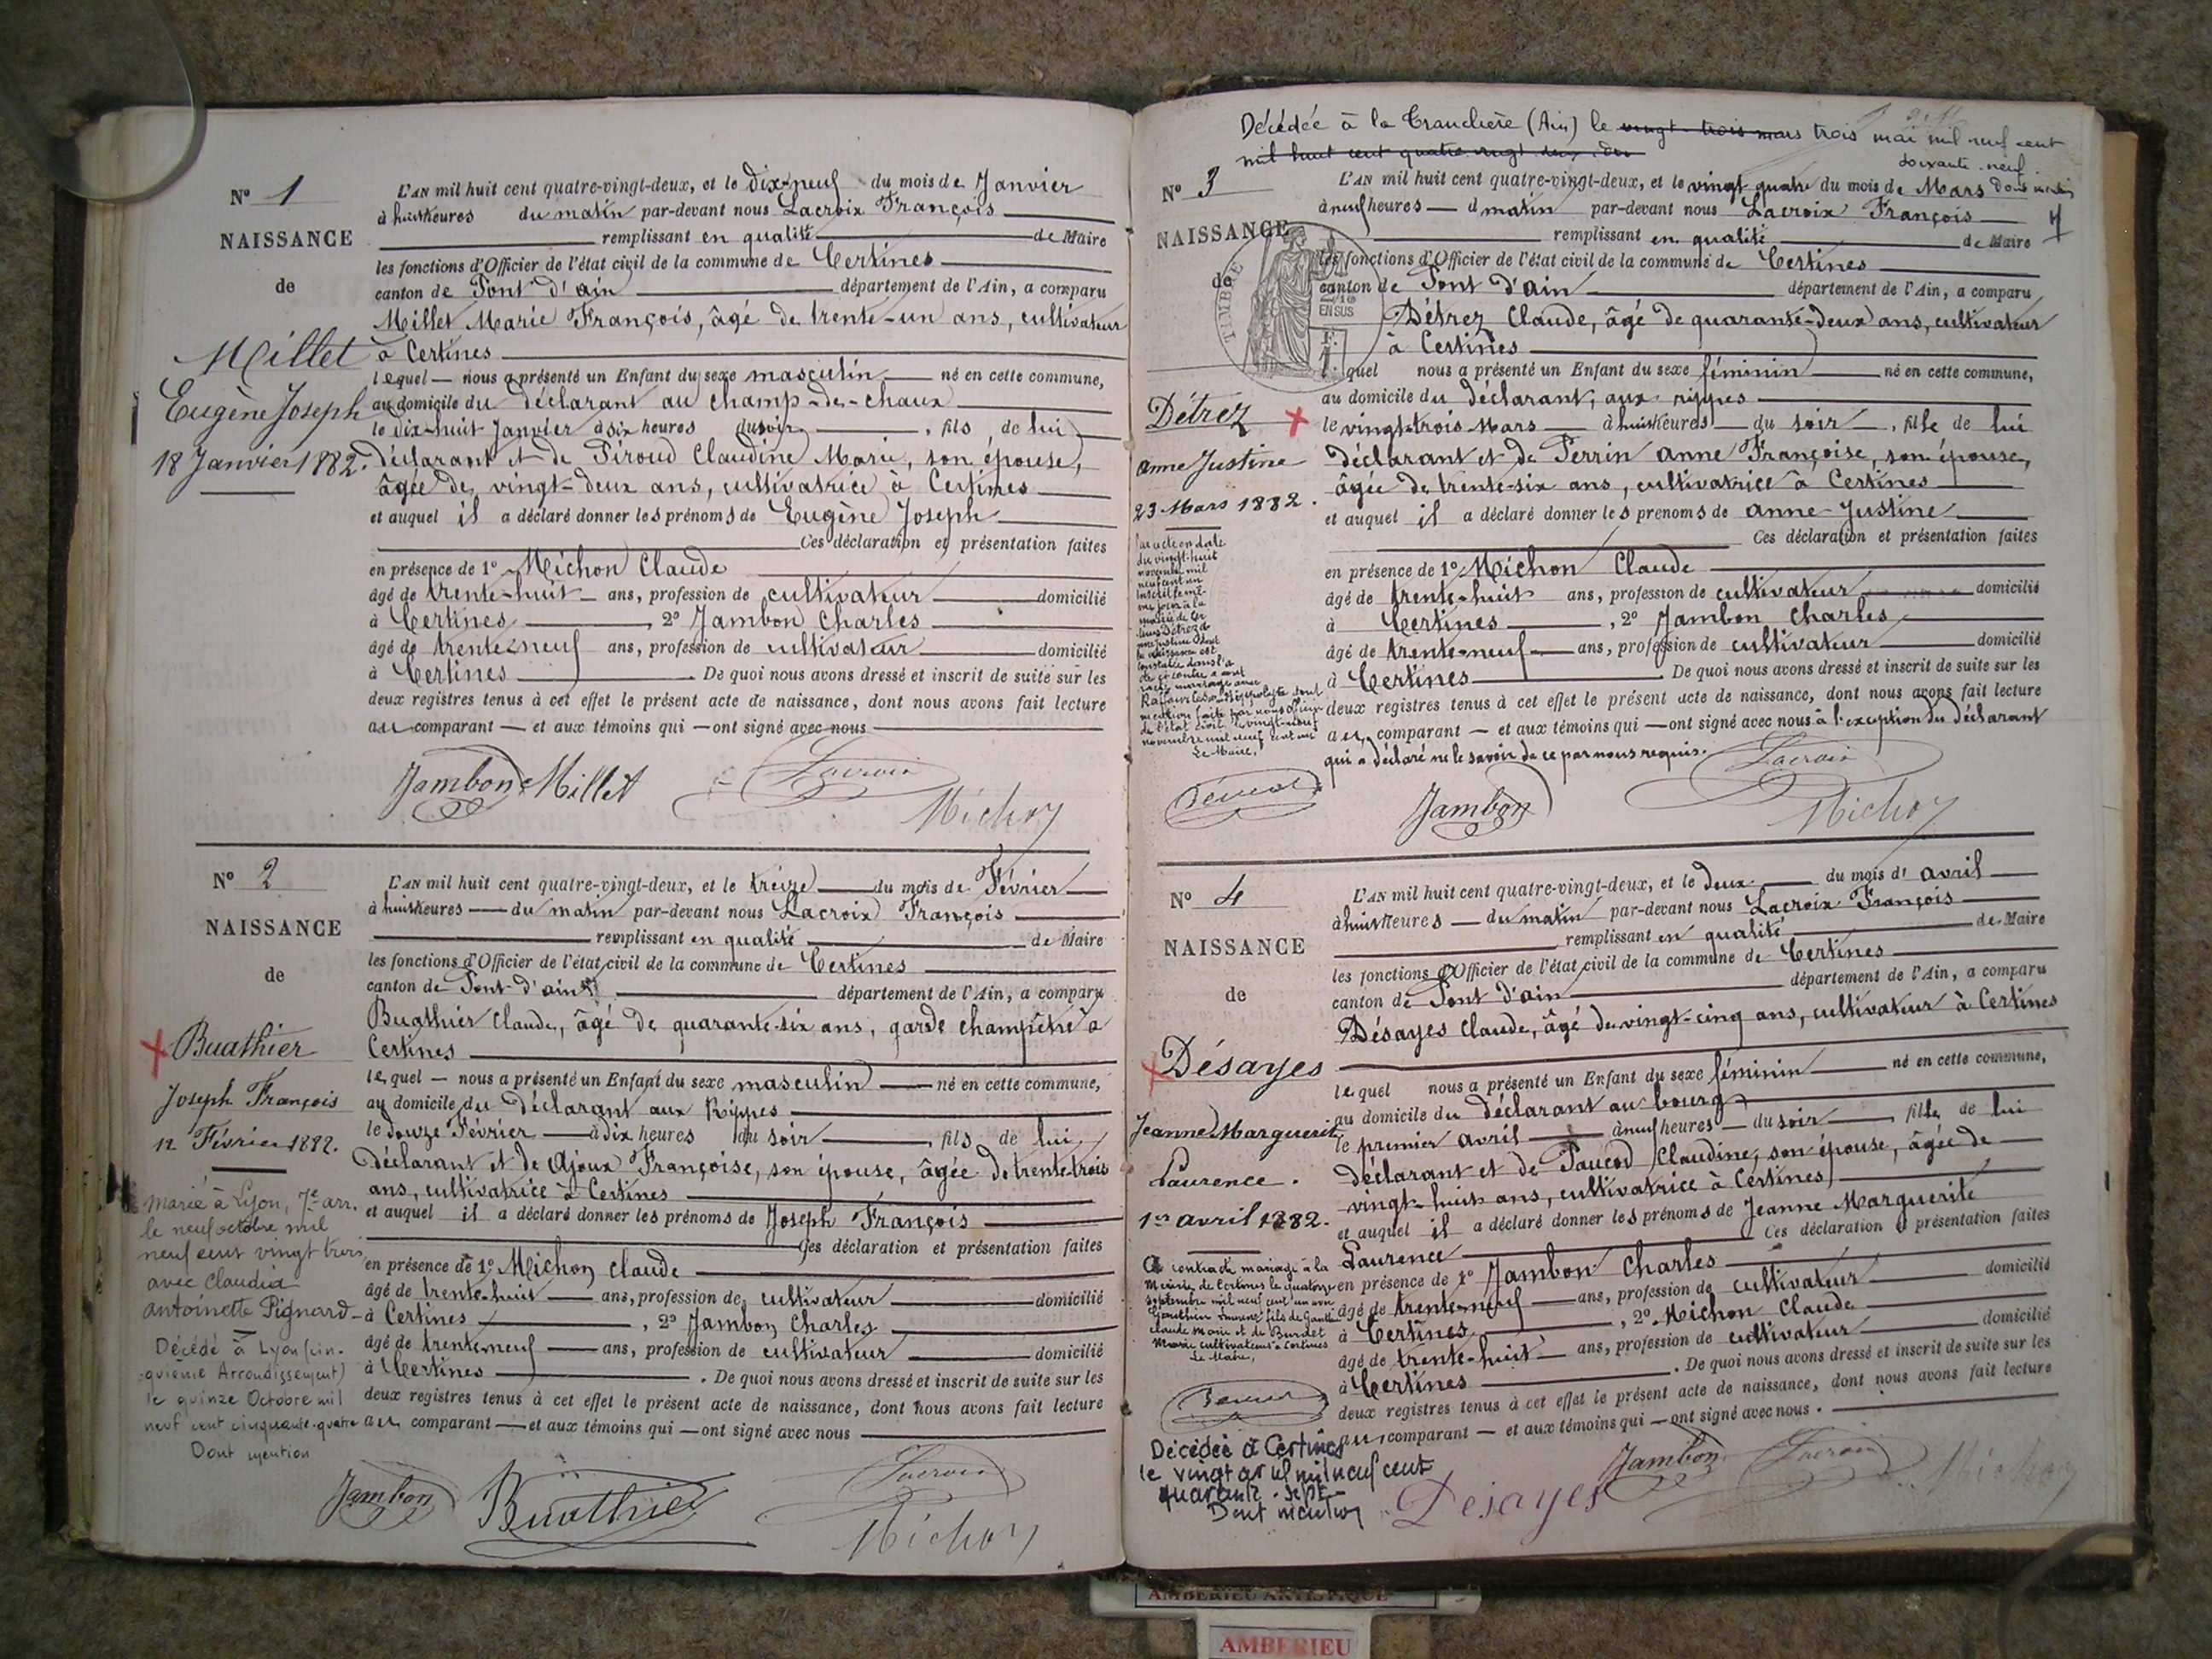 N° 1
NAISSANCE
de
Millet
Eugène Joseph
18 Janvier 1882.
L'AN mil huit cent quatre-vingt-deux, et le dix-neuf du mois de Janvier
à huit heures du matin par-devant nous Lacroix François
remplissant en qualité de Maire
les fonctions d'Officier de l'état civil de la commune de Certines
canton de Pont d'ain département de l'Ain, a comparu
Millet Marie François, âgé de trente-un ans, cultivateur
à Certines
lequel nous a présenté un Enfant du sexe masculin né en cette commune,
au domicile du déclarant au champ-de-chaux
le dix-huit Janvier à six heures du soir, fils de lui
déclarant et de Piroud Claudine Marie, son épouse,
âgée de vingt-deux ans, cultivatrice à Certines
et auquel il a déclaré donner les prénoms de Eugène Joseph
Ces déclaration et présentation faites
en présence de 1° Michon Claude
âgé de trente-huit ans, profession de cultivateur domicilié
à Certines, 2° Jambon Charles
âgé de trente-neuf ans, profession de cultivateur domicilié
à Certines. De quoi nous avons dressé et inscrit de suite sur les
deux registres tenus à cet effet le présent acte de naissance, dont nous avons fait lecture
au comparant — et aux témoins qui — ont signé avec nous
Jambon Millet Lacroix
Michon
N° 2
NAISSANCE
de
Buathier
Joseph François
12 Février 1882.
Marié à Lyon, 7e arr.
le neuf octobre mil
neuf cent vingt trois
avec Claudia
Antoinette Pignard
Décédé à Lyon (cin-
quième Arrondissement)
le quinze Octobre mil
neuf cent cinquante-quatre
Dont mention
L'AN mil huit cent quatre-vingt-deux, et le treize du mois de Février
à huit heures du matin par-devant nous Lacroix François
remplissant en qualité de Maire
les fonctions d'Officier de l'état civil de la commune de Certines
canton de Pont d'ain département de l'Ain, a comparu
Buathier Claude, âgé de quarante-six ans, garde champêtre à
Certines
lequel — nous a présenté un Enfant du sexe masculin né en cette commune,
au domicile du déclarant aux Rippes
le douze Février à dix heures du soir, fils de lui
déclarant et de Ajoux Françoise, son épouse, âgée de trente-trois
ans, cultivatrice à Certines
et auquel il a déclaré donner les prénoms de Joseph François
Ces déclaration et présentation faites
en présence de 1° Michon Claude
âgé de trente-huit ans, profession de cultivateur domicilié
à Certines, 2° Jambon Charles
âgé de trente-neuf ans, profession de cultivateur domicilié
à Certines. De quoi nous avons dressé et inscrit de suite sur les
deux registres tenus à cet effet le présent acte de naissance, dont nous avons fait lecture
au comparant — et aux témoins qui — ont signé avec nous
Jambon Buathier Lacroix
Michon
Décédée à la Tranclière (Ain) le vingt-trois mars trois mai mil neuf cent
mil huit cent quatre vingt deux
soixante-neuf.
Dont mention
N° 3
NAISSANCE
de
TIMBRE
Détrez
anne Justine
23 Mars 1882.
Par acte en date
du vingt-huit
novembre mil
neuf cent un
inscrit le mê-
me jour à la
mairie de Cer-
tines Détrez
anne Justine dont
la naissance est
constatée dans l'a-
cte ci-contre a cont-
racté mariage avec
mention faite par nous officier
de l'état civil le vingt-neuf
novembre mil neuf cent un
Le Maire,
L'AN mil huit cent quatre-vingt-deux, et le vingt quatre du mois de Mars
à neuf heures — du matin par-devant nous Lacroix François
remplissant en qualité de Maire
les fonctions d'Officier de l'état civil de la commune de Certines
canton de Pont d'ain département de l'Ain, a comparu
Détrez Claude, âgé de quarante-deux ans, cultivateur
à Certines
lequel nous a présenté un Enfant du sexe féminin né en cette commune,
au domicile du déclarant, aux rippes
le vingt-trois Mars à huit heures du soir, fille de lui
déclarant et de Perrin anne Françoise, son épouse,
âgée de trente-six ans, cultivatrice à Certines
et auquel il a déclaré donner les prénoms de anne Justine
Ces déclaration et présentation faites
en présence de 1° Michon Claude
âgé de trente-huit ans, profession de cultivateur domicilié
à Certines, 2° Jambon Charles
âgé de trente-neuf ans, profession de cultivateur domicilié
à Certines. De quoi nous avons dressé et inscrit de suite sur les
deux registres tenus à cet effet le présent acte de naissance, dont nous avons fait lecture
au comparant — et aux témoins qui — ont signé avec nous à l'exception du déclarant
qui a déclaré ne le savoir de ce par nous requis.
Jambon Lacroix
Michon
N° 4
NAISSANCE
de
Désayes
Jeanne Marguerite
Laurence.
1er avril 1882.
A contracté mariage à la
Mairie de Certines le quatorze
septembre mil neuf cent un avec
Gauthier fils de Gauthier
Claude Marie et de Burdet
Marie cultivateurs à Certines
Le Maire,
Décédée à Certines
le vingt avril mil neuf cent
quarante-sept
Dont mention
L'AN mil huit cent quatre-vingt-deux, et le deux du mois d'avril
à huit heures — du matin par-devant nous Lacroix François
remplissant en qualité de Maire
les fonctions d'Officier de l'état civil de la commune de Certines
canton de Pont d'ain département de l'Ain, a comparu
Désayes Claude, âgé de vingt-cinq ans, cultivateur à Certines
lequel nous a présenté un Enfant du sexe féminin né en cette commune,
au domicile du déclarant au bourg
le premier avril à neuf heures du soir, fille de lui
déclarant et de Paucod Claudine, son épouse, âgée de
vingt-huit ans, cultivatrice à Certines
et auquel il a déclaré donner les prénoms de Jeanne Marguerite
Laurence Ces déclaration et présentation faites
en présence de 1° Jambon Charles
âgé de trente-neuf ans, profession de cultivateur domicilié
à Certines, 2° Michon Claude
âgé de trente-huit ans, profession de cultivateur domicilié
à Certines. De quoi nous avons dressé et inscrit de suite sur les
deux registres tenus à cet effet le présent acte de naissance, dont nous avons fait lecture
au comparant — et aux témoins qui — ont signé avec nous.
Désayes Jambon Lacroix Michon
AMBERIEU ARTISTIQUE
AMBERIEU